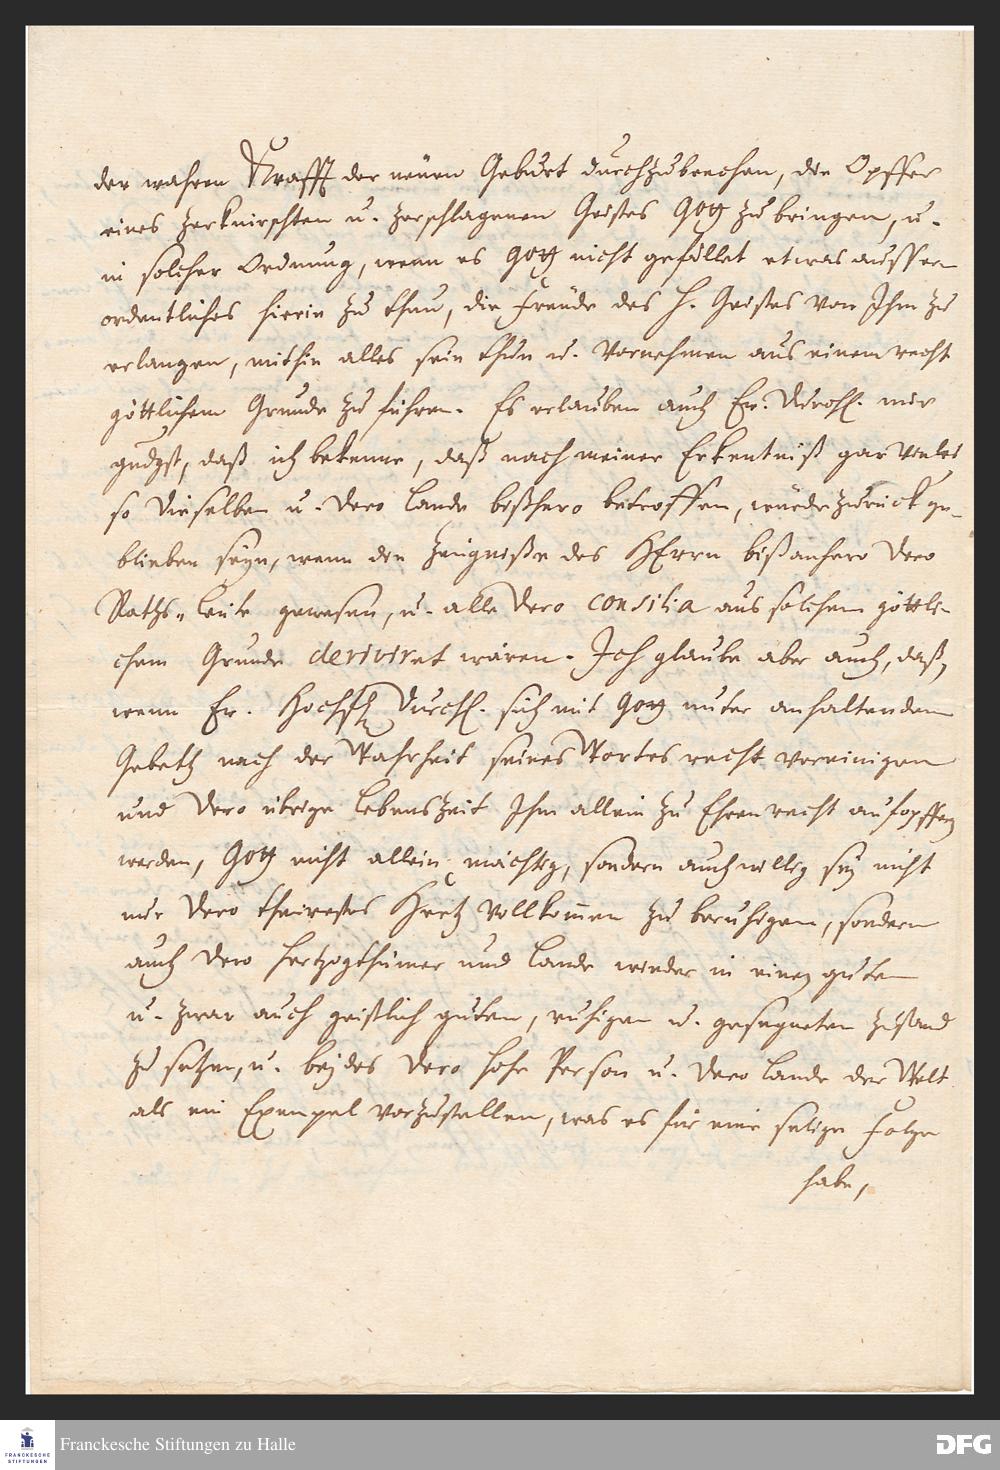 der wahren Krafft der neüen Geburt durchzubrechen, die Opffer
eines zerknirschten u. zerschlagenen Geistes Gott zu bringen, u.
in solcher Ordnung, wenn es Gott nicht gefället etwas ausser
ordentliches hierin zu thun, die Freüde des H. Geistes von Ihm zu
erlangen, mithin alles sein thun u. Vornehmen aus einem recht
göttlichem Grunde zu führen. Es erlauben auch Ew. Durchl. mir
gndgst, daß ich bekenne, daß nach meiner Erkentniß gar vieles
so Dieselben u. Dero Lande bißhero betroffen, würde zurück ge-
blieben seyn, wenn die Zeügniße des HErrn bißanhero Dero
Raths-Leüte gewesen, u. alle Dero consilia aus solchem göttli-
chem Grunde deriviret wären. Ich glaube aber auch, daß,
wenn Ew. Hochfstl Durchl. sich mit Gott unter anhaltendem
Gebeth nach der Wahrheit seines Wortes recht vereinigen
und Dero übrige Lebenszeit Ihm allein zu Ehren recht aufopffern
werden, Gott nicht allein mächtig, sondern auch willig sey nicht
nur Dero theürestes Hertz vollkom̄en zu beruhigen, sondern
auch Dero Hertzogthümer und Lande wieder in einen guten
u. zwar auch geistlich guten, ruhigen u. gesegneten Zustand
zu setzen, u. beydes Dero hohe Person u. Dero Lande der Welt
als ein Exempel vorzustellen, was es für eine selige Folge
habe,
Franckesche Stiftungen zu Halle
FRANCKESCHE
STIFTUNGEN
DFG